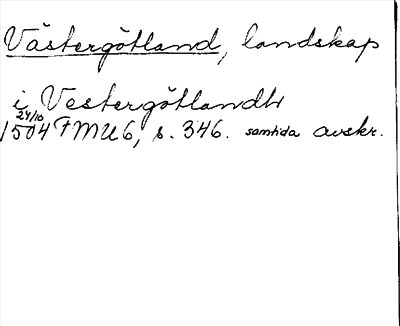 Västergötland, landskap
i Vestergötlandh
24/10
1504 FMU 6, s. 346. samtida avskr.